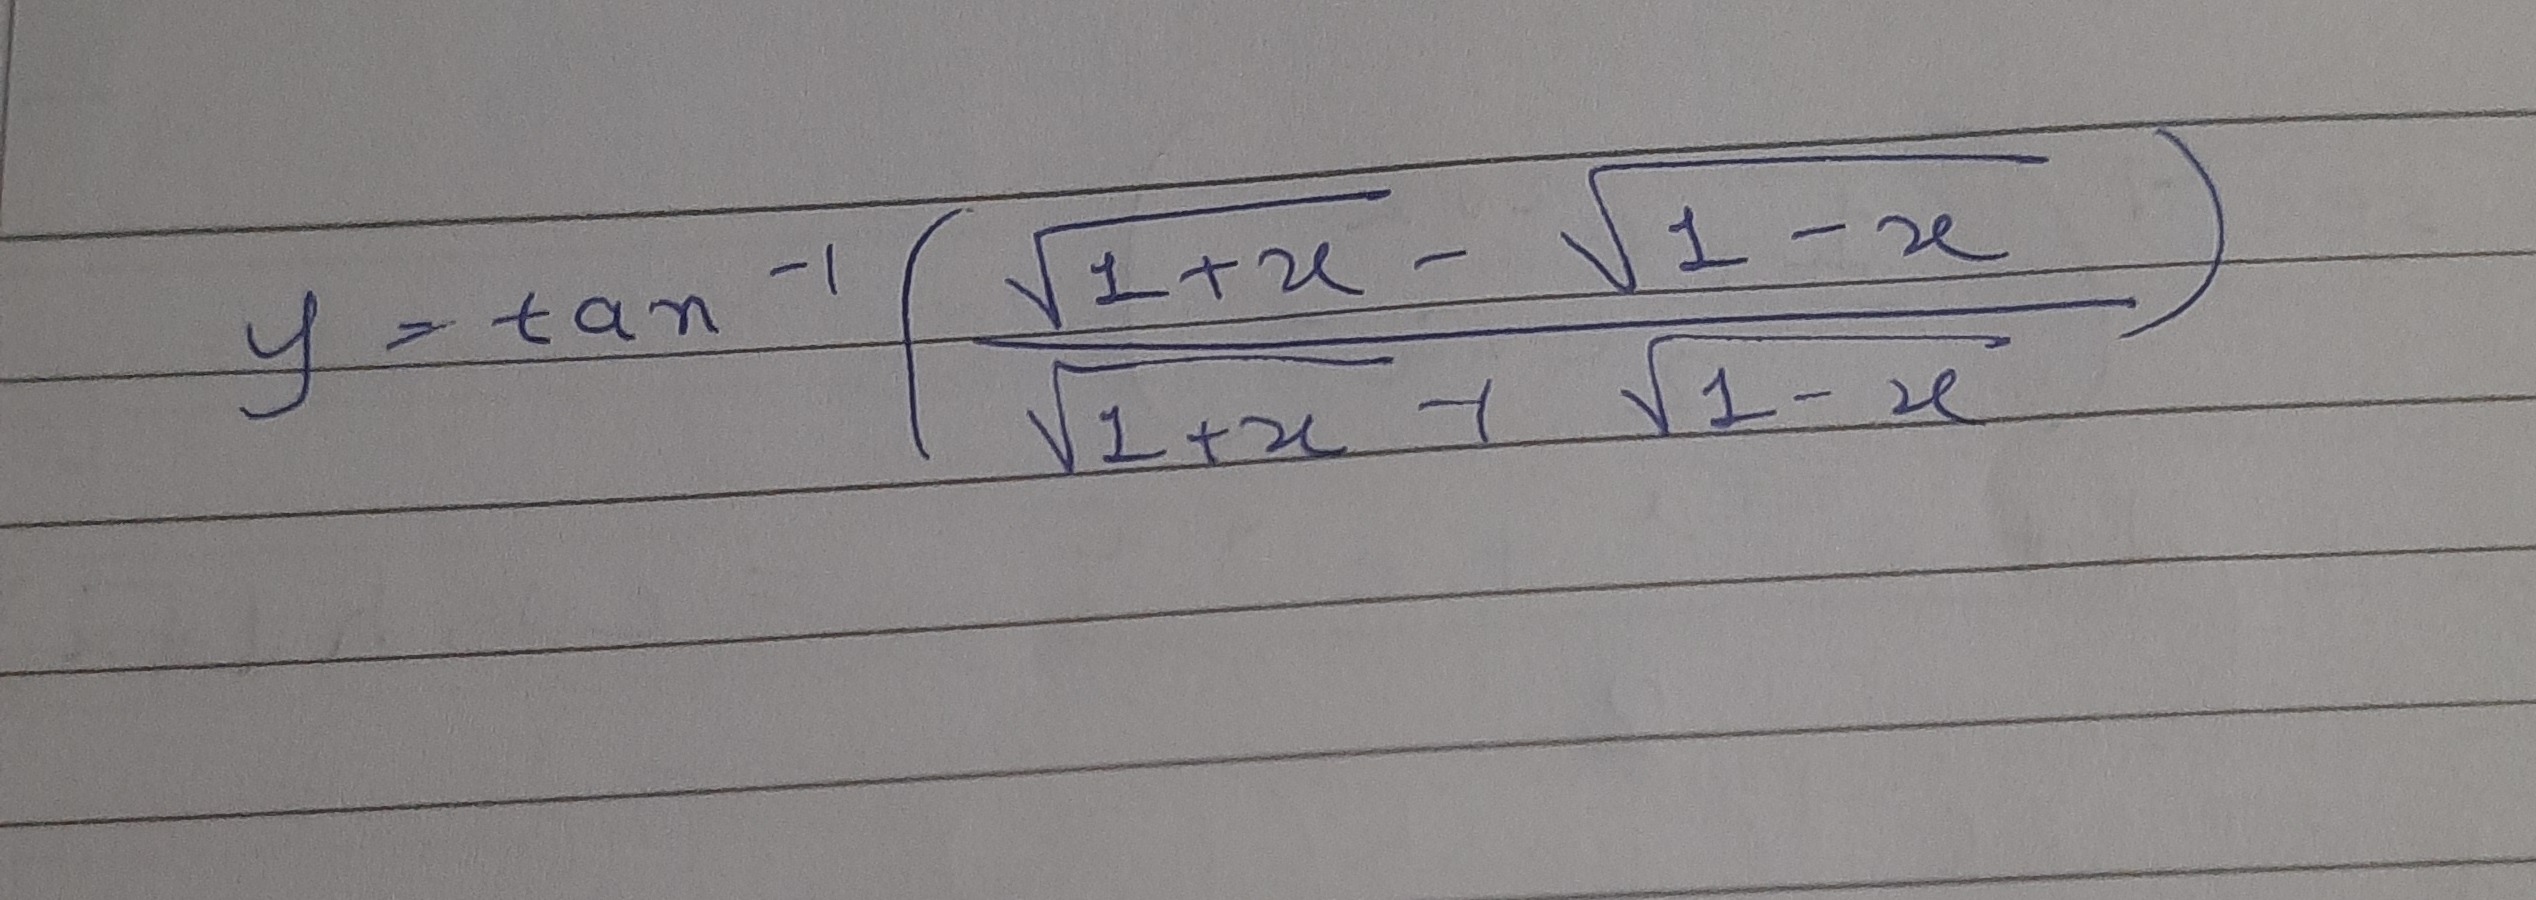 y = tan⁻¹ ( (√(1+x) - √(1-x)) / (√(1+x) + √(1-x)) )